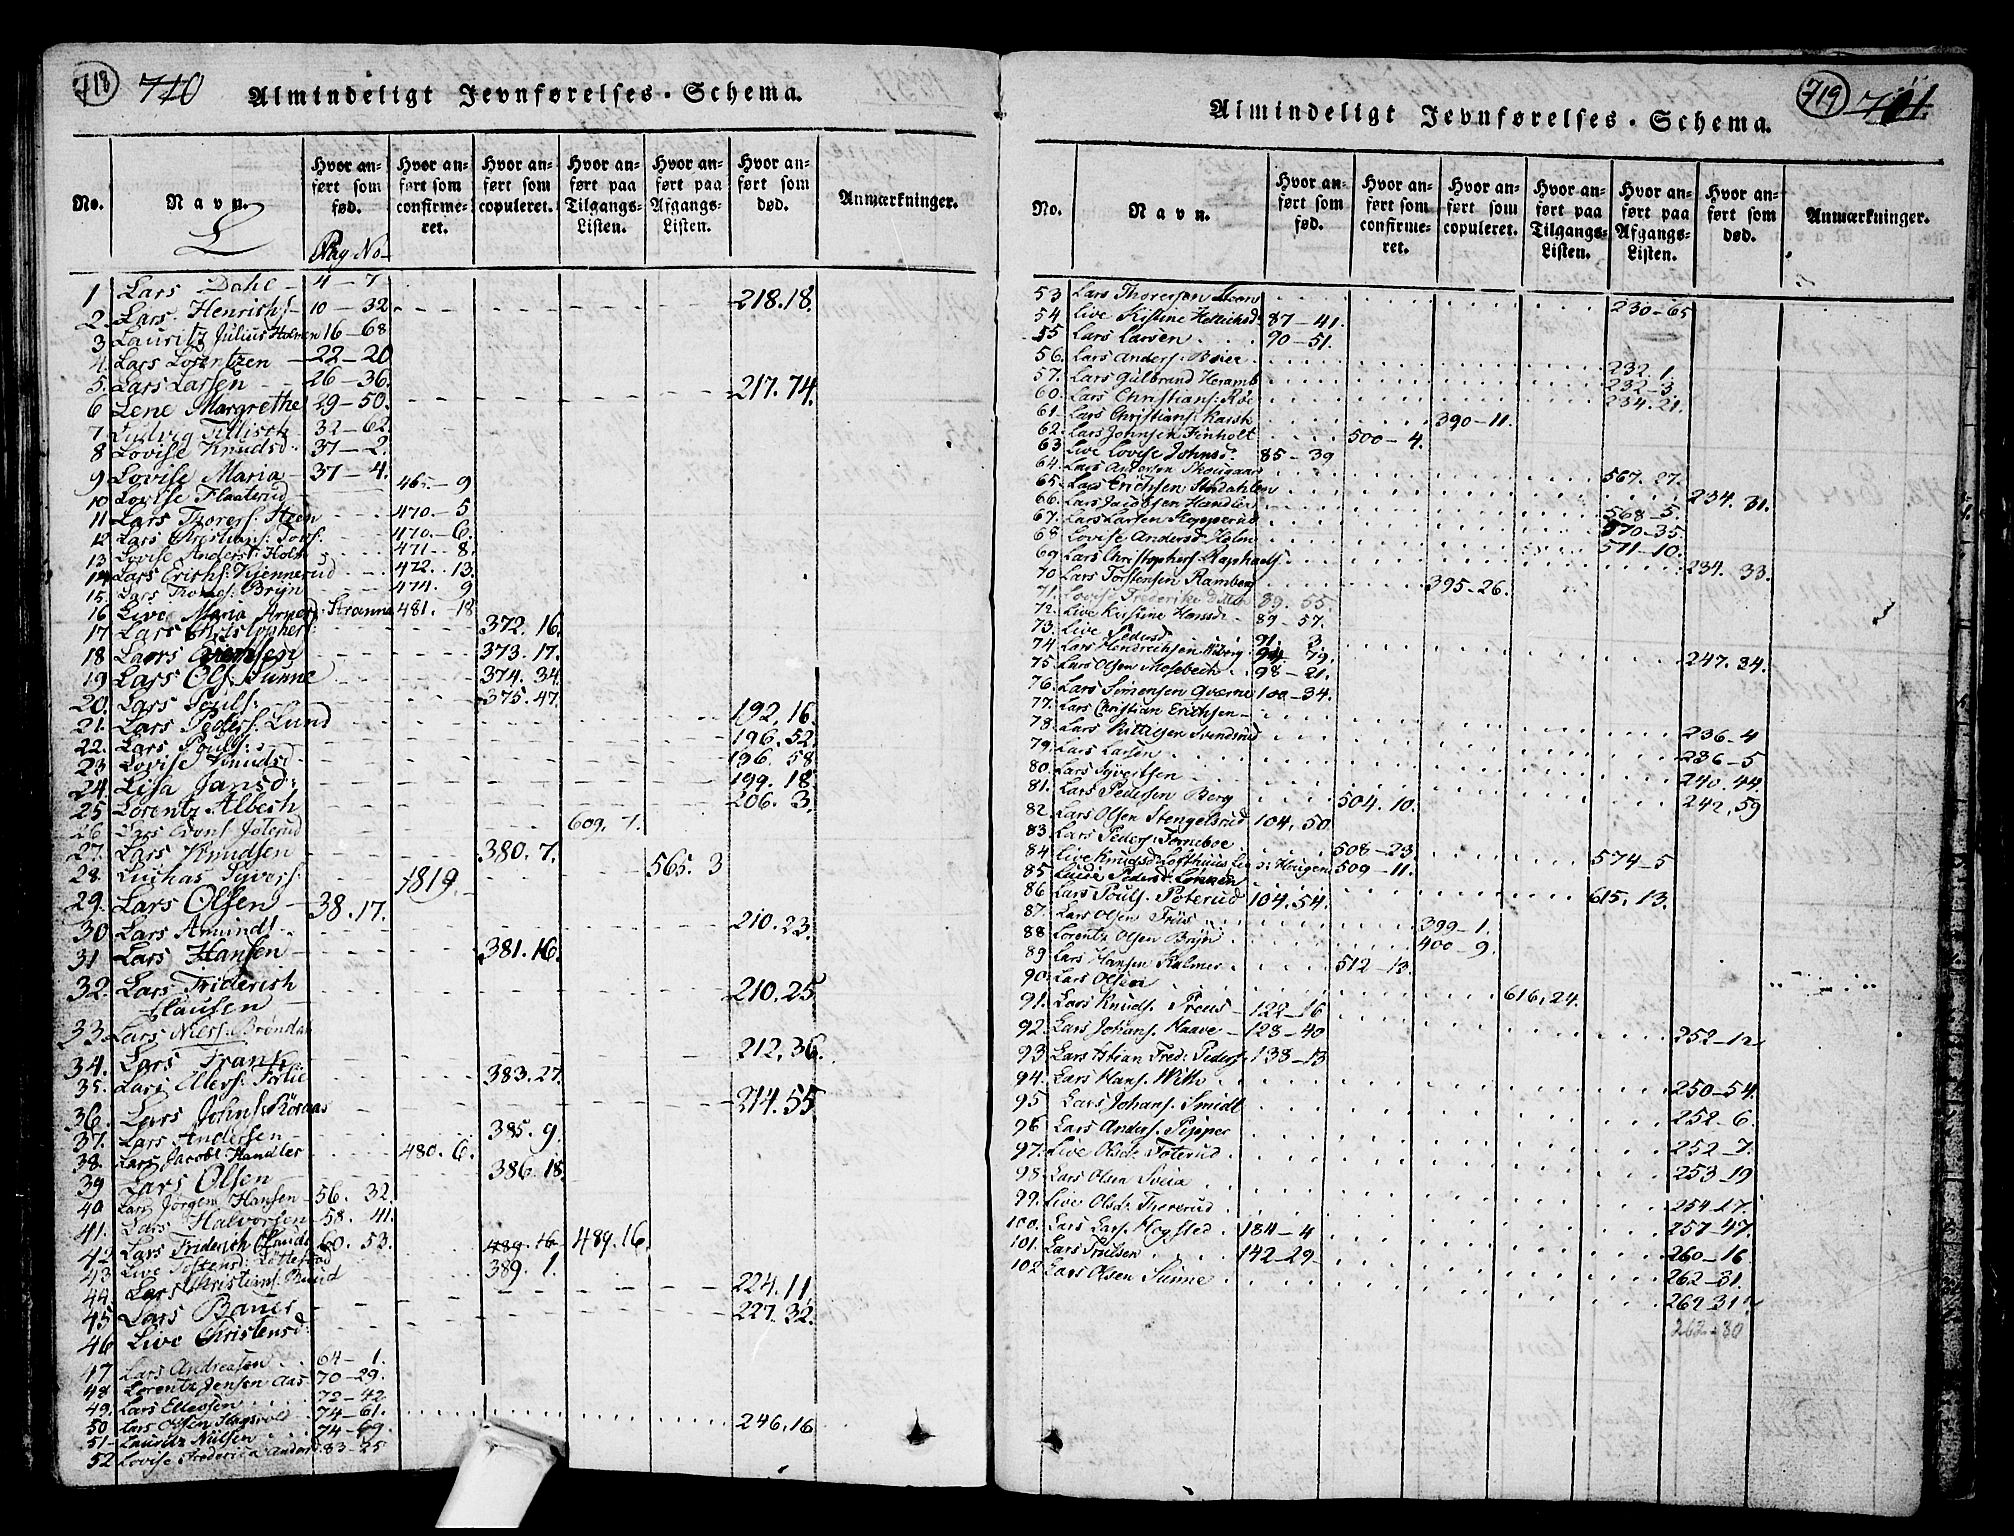 718 710 Almindeligt Jevnførelses-Schema.
No. Navn. L Hvor an-ført som fød. Pag No Hvor an-ført som confirme-ret. Hvor an-ført som copuleret. Hvor an-ført paa Tilgangs-Listen. Hvor an-ført paa Afgangs-Listen. Hvor an-ført som død. Anmærkninger.
1 Lars Dahl 4-7
2. Lars Henrichs: 10-32. 218.18.
3 Lauritz Julius Holmen 16-68
4. Lars Lorentzen 22-20
5. Lars Larsen 26-36.
6 Lene Margrethe 29-50. 217.74.
7 Ludvig Tillisch 32-62
8 Lovise Knudsd. 37-2.
9 Lovise Maria 37-4.
10 Lovise Flaaterud 465-9
11 Lars Thorers: Steen 470-5
12 Lars Christians: 470-6.
13 Lovise Andersd: Holm 471-8.
14 Lars Erichs: Kjennerud 472.13.
15. Lars Thomes: Bryn 474.9
16 Live Maria Strømme 481.18
17 Lars Christophers: 372.16.
18 Lars 373.17.
19 Lars Ols: Sunne 374.34.
20. Lars Pouls: 375.47.
21. Lars Peders: Lund 192.16.
22. Lars Pouls: 196.52.
23 Lovise Knudsd. 196.58
24. Lisa Jansd: 199.18.
25 Lorentz Albech 206.3.
26 Lars Foterud 609.7.
27. Lars Knudsen 380.7.
28 Luchas Syvers: 565.3
29. Lars Olsen 38.17. 1819
30 Lars Amunds. 210.23.
31 Lars Hansen 381.16.
32. Lars Friderich Clausen 210.25
33. Lars Niels: Brøndal
34. Lars Frants: 212,36.
35. Lars Ellers: 383.27.
36. Lars Johns: Røraas 214.55
37. Lars Andersen 385.9.
38. Lars Jacobs: Handler 480.6.
39 Lars Olsen 386.18.
40 Lars Jørgen Hansen 56.32.
41. Lars Halvorsen 58.41.
42 Lars Friderich Clauds 60.53. 489.16 489.16.
43 Live Tostensd: 389.1.
44. Lars Christians: Buud 224.11.
45 Lars Baner 227.32.
46 Live Christensd:
47 Lars Andreasen 64-1.
48 Lorentz Jensen Aas 70-29.
49. Lars Ellevsen 72-42.
50 Lars Olsen 74-61. 246,16
51- Lauritz Nielsen 74-69.
52 Lovise Frederica Anders. 83-25
719 711. Almindeligt Jevnførelses-Schema.
No. Navn. Hvor an-ført som fød. Hvor an-ført som confirme-ret. Hvor an-ført som copuleret. Hvor an-ført paa Tilgangs-Listen. Hvor an-ført paa Afgangs-Listen. Hvor an-ført som død. Anmærkninger.
53 Lars Thoresen Steen 230-65
54 Live Kistine Hellichsd. 87-41.
55 Lars Larsen 90-51.
56. Lars Anders: Bøier 232.1.
57. Lars Gulbrand Heramb 232-3.
60. Lars Christians: Røe 234.21.
61. Lars Christians: 390-11.
62. Lars Johnsen Finholt 500-4.
63 Live Lovise Johnsd. 85-39
64. Lars Andersen Skougaard 567.27.
65. Lars Erichsen Stordahlen 234.31.
66. Lars Jacobsen Handler 568-5.
67. Lars Larsen Stopperud 570-35.
68 Lovise Andersd. Holm 571-10.
69. Lars Christophers. Raphaels: 234.33.
70 Lars Torstensen Ramberg 395-26.
71. Lovise Frederike Ditlev 89.55.
72. Live Kistine Hansd. 89-57.
73. Live Pedersd. 91.3.
74 Lars Hendrichsen Wiberg. 94 79. 247.34.
75 Lars Olsen Mosebech 98-21.
76. Lars Simensen Qværne 100-34.
77. Lars Christian Erichsen 236-4
78. Lars Kittelsen Svendsrud 236-5
79. Lars Larsen 240.44.
80. Lars Syvertsen 242,59
81. Lars Pedersen Berg 504.10.
82 Lars Olsen Stengelsrud 104,50.
83. Lars Peders: Torneboe 508-23.
84 Live Knudsd. Lofthuus Hougen 509-11. 574-5
85 Pedersd: 615.13.
86 Lars Pouls. Poterud 104.54.
87. Lars Olsen Friis 399-1.
88 Lorentz Olsen Bryn 400-9.
89 Lars Hansen Kalmer 512-13.
90. Lars Olsen 616,24.
91. Lars Knuds. Preus 122-16
92. Lars Johans. Haave 123-40 252-12
93 Lars Fred: Peders: 133-13
94. Lars Hans. With 250-54.
95 Lars Johans. Smidt 252-6.
96 Lars Anders. Pipper 252-7.
97. Live Olsd: Foterud 253-19
98. Lars Olsen Sveia 254-17.
99. Live Olsd: Thorerud 257-47.
100. Lars Lars. Hogsted 184-4 260-16.
101. Lars Troelsen 142-29 262-31.
102 Lars Olsen Sunne 262-31
262-30